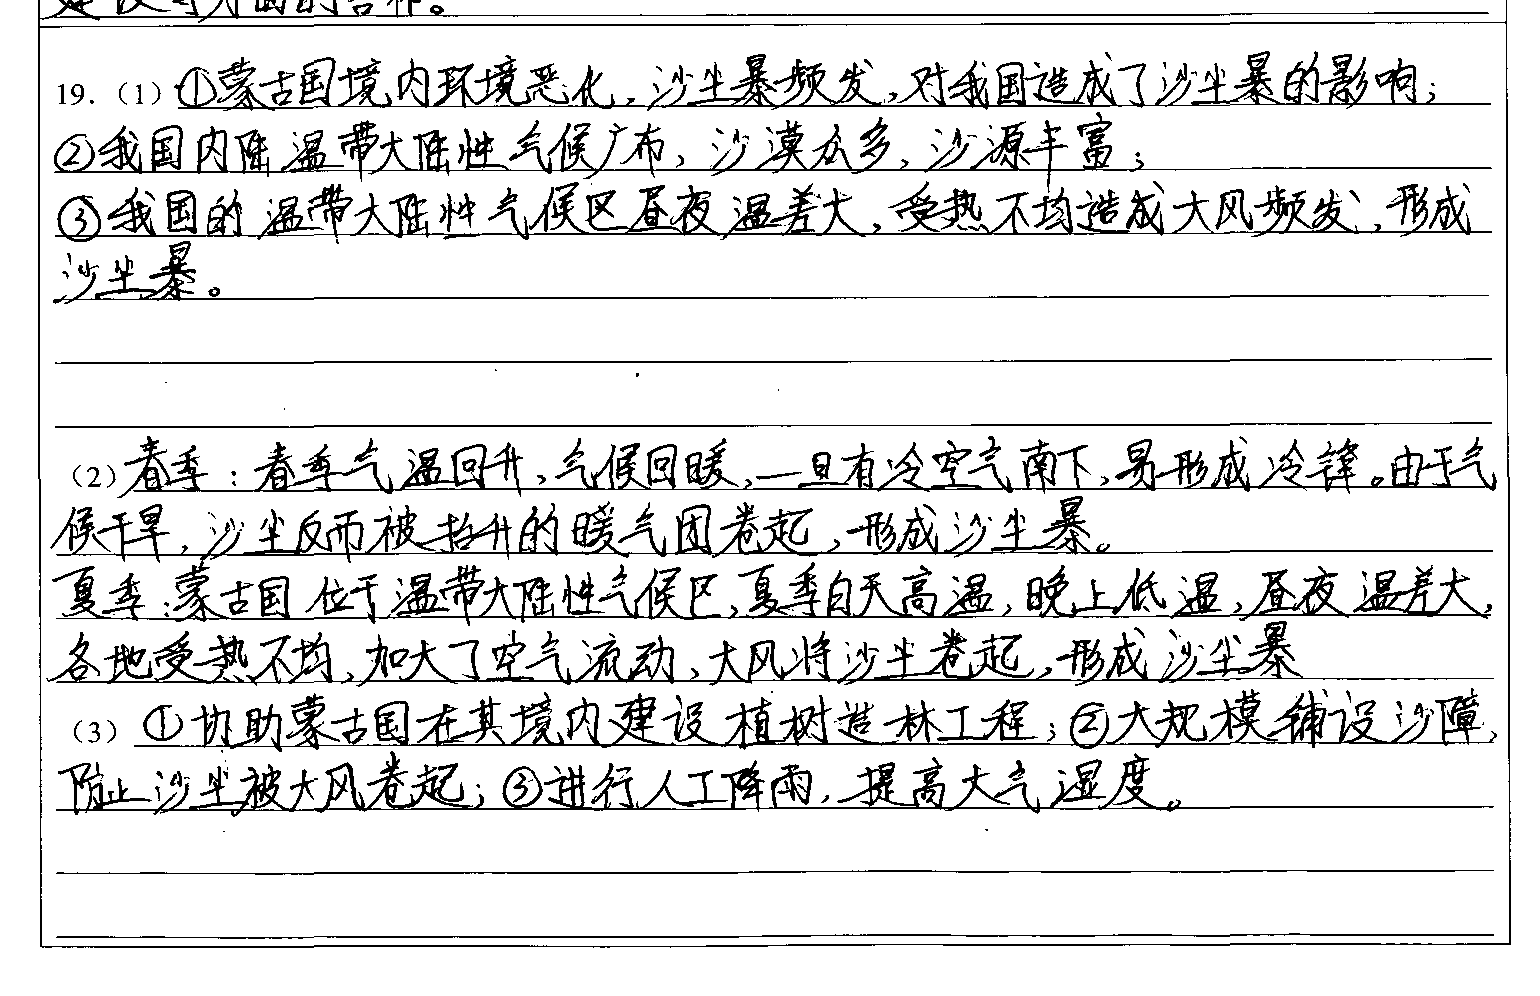 建设等方面的合作。
19.（1）①蒙古国境内环境恶化，沙尘暴频发，对我国造成了沙尘暴的影响；
②我国内陆温带大陆性气候广布，沙漠众多，沙源丰富；
③我国的温带大陆性气候区昼夜温差大，受热不均造成大风频发，形成
沙尘暴。
（2）春季：春季气温回升，气候回暖，一旦有冷空气南下，易形成冷锋。由于气
候干旱，沙尘反而被抬升的暖气团卷起，形成沙尘暴。
夏季：蒙古国位于温带大陆性气候区，夏季白天高温，晚上低温，昼夜温差大，
各地受热不均，加大了空气流动，大风将沙尘卷起，形成沙尘暴
（3）①协助蒙古国在其境内建设植树造林工程；②大规模铺设沙障，
防止沙尘被大风卷起；③进行人工降雨，提高大气湿度。